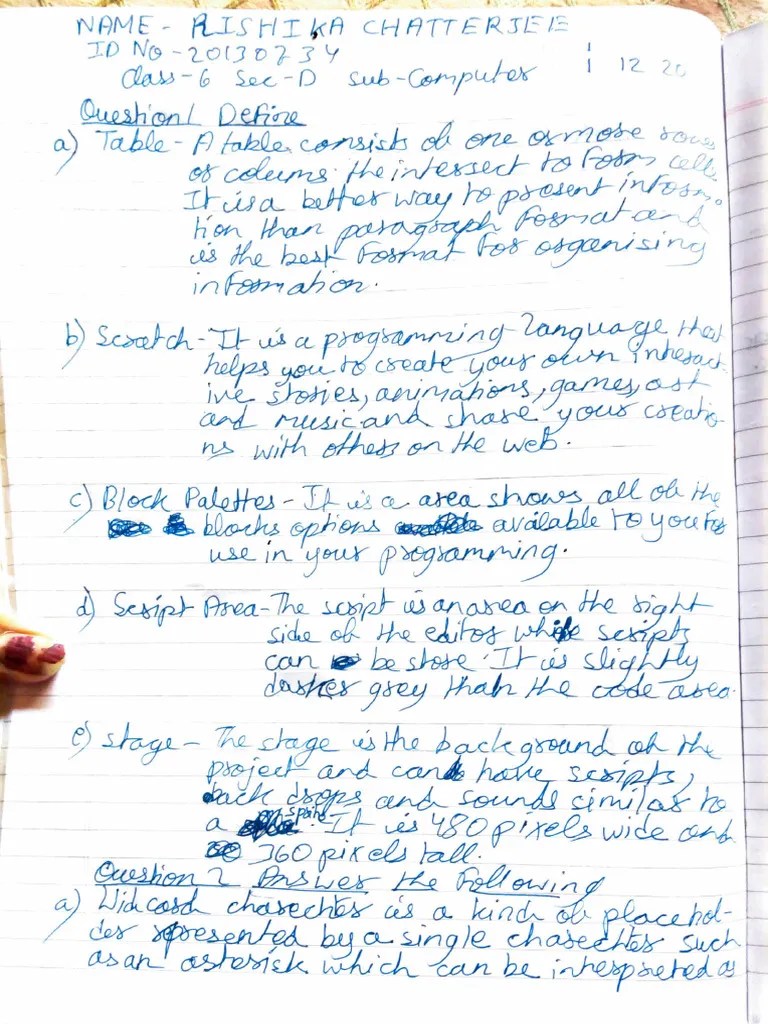 NAME - RISHIKA CHATTERJEE
ID No - 20130734
Class - 6 Sec - D Sub - Computer
1 12 20
Question 1 Define
a) Table - A table consists of one or more rows
or colums. the intersect to form cells
It is a better way to present inform-
tion than paragraph format and
is the best format for organising
information.
b) Scratch - It is a programming language that
helps you to create your own interact-
ive stories, animations, games, art
and music and share your creatio-
ns with others on the web.
c) Block Palettes - It is a area shows all of the
blocks options available to you for
use in your programming.
d) Script Area - The script is an area on the right
side of the editor while scripts
can be store. It is slightly
darker grey than the code area.
e) Stage - The stage is the background of the
project and can have scripts,
back drops and sounds similar to
a sprite. It is 480 pixels wide and
360 pixels tall.
Question 2 Answer the Following
a) Wildcard charecther is a kind of placehol-
der represented by a single charecther such
as an asterisk which can be interpreted as